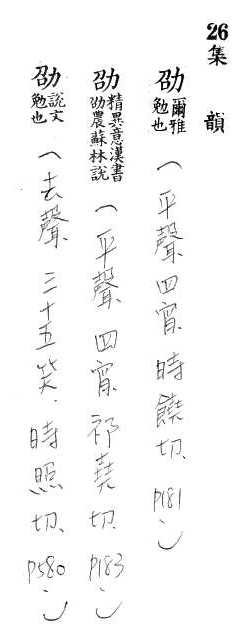 26集韻
劭爾雅勉也(平聲、四宵、時饒切、P181、)
劭精異意漢書劭農蘇林說(平聲、四宵、祁堯切、P183、)
劭說文勉也(去聲、三十五笑、時照切、P580、)